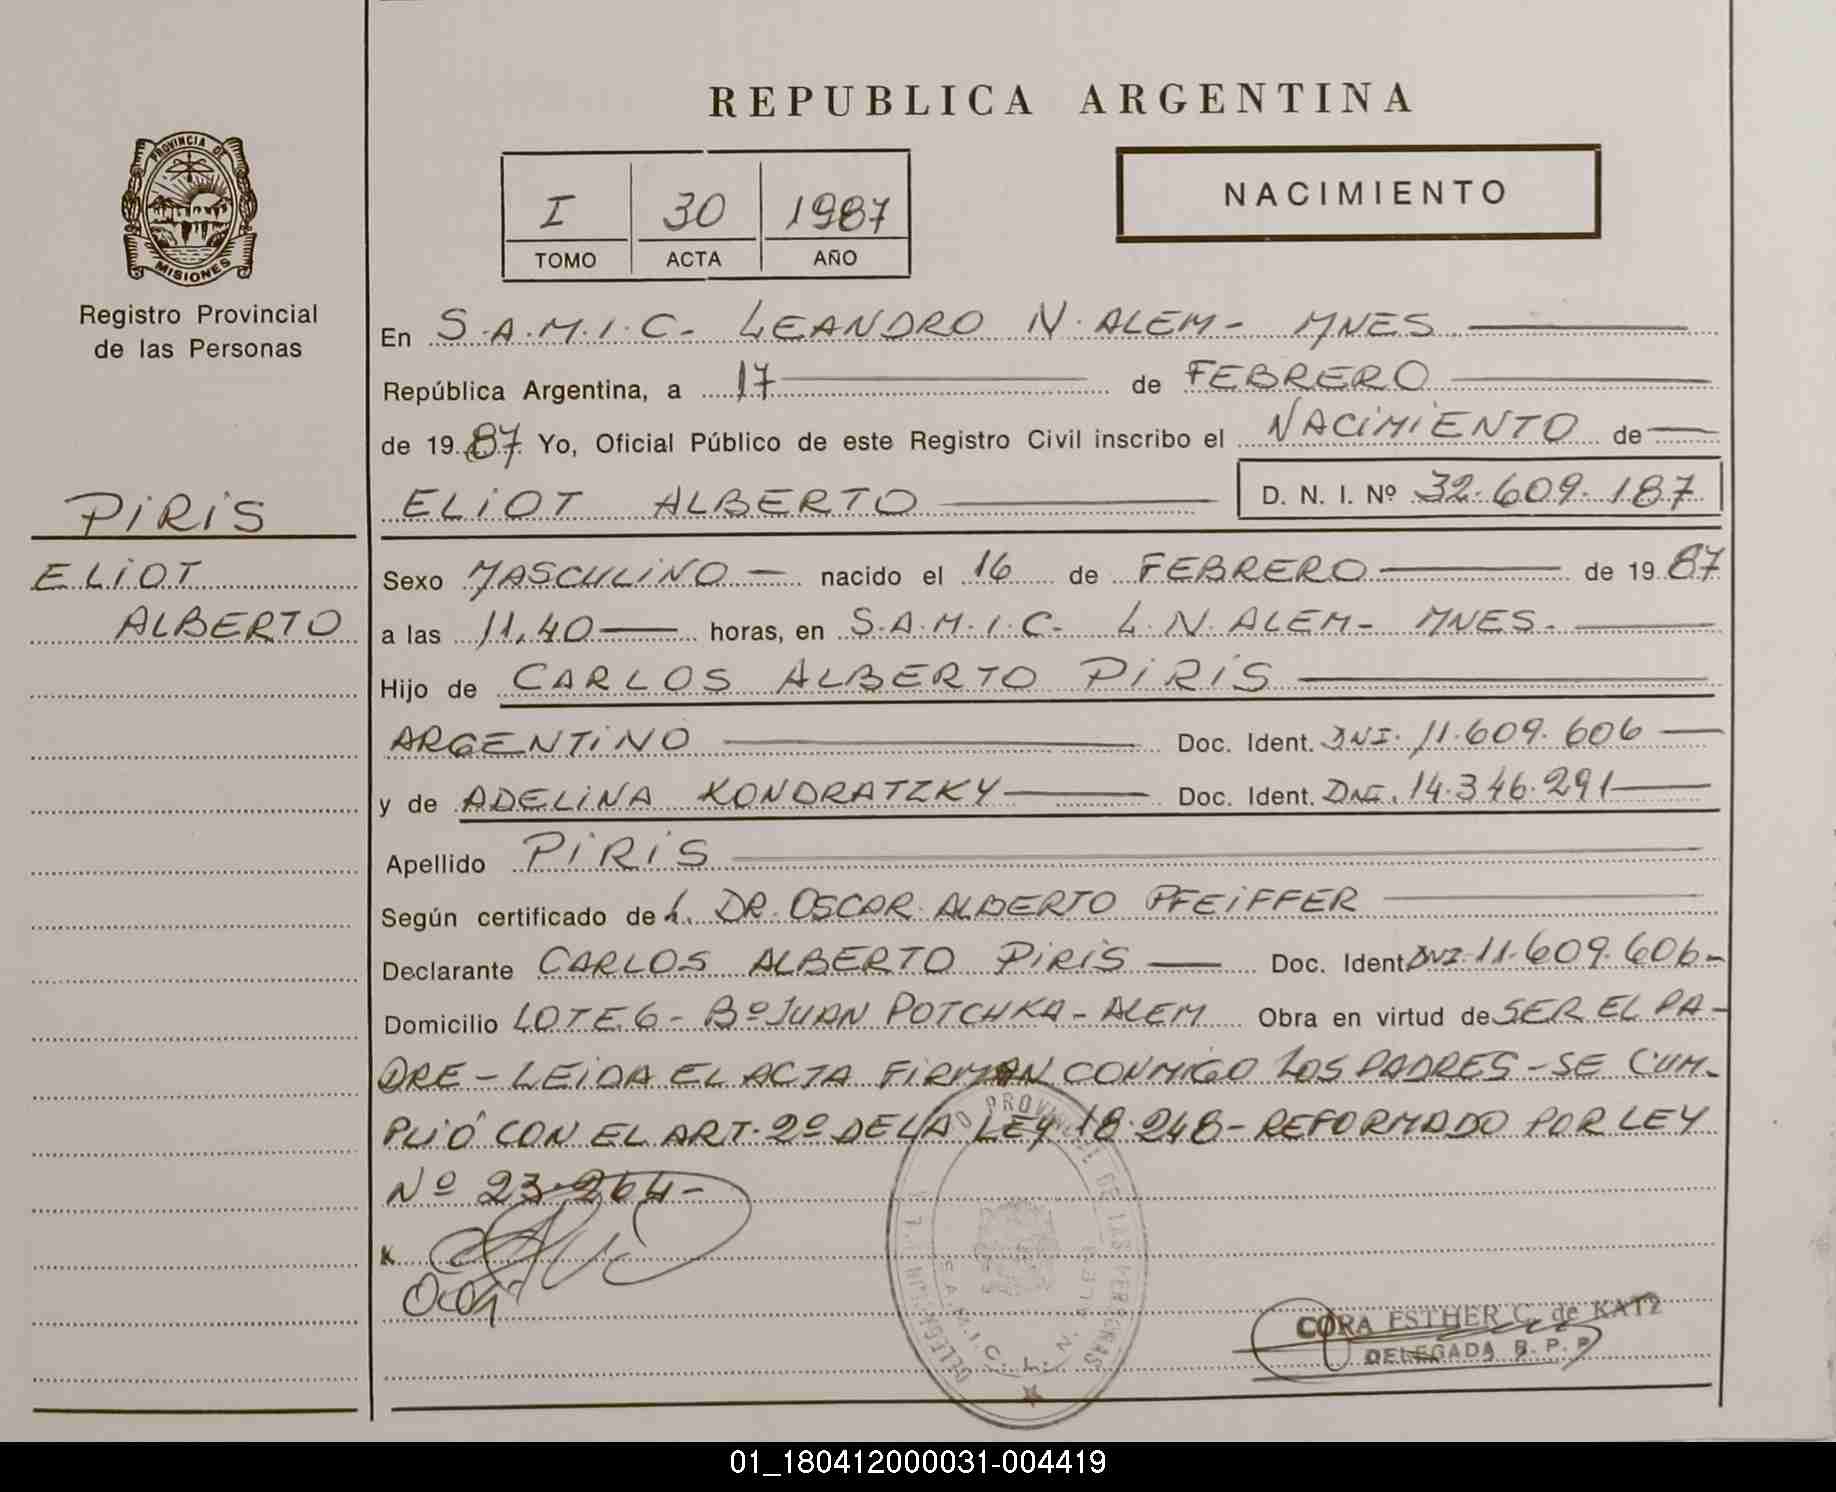 REPUBLICA ARGENTINA
PROVINCIA DE
MISIONES
Registro Provincial
de las Personas
I 30 1987
TOMO ACTA AÑO
NACIMIENTO
En S.A.M.I.C- LEANDRO N. ALEM- MNES
República Argentina, a 17 de FEBRERO
de 19 87 Yo, Oficial Público de este Registro Civil inscribo el NACIMIENTO de
PIRIS
ELIOT ALBERTO D. N. I. Nº 32.609.187
ELIOT
ALBERTO
Sexo MASCULINO - nacido el 16 de FEBRERO de 19 87
a las 11,40 horas, en S.A.M.I.C- L.N. ALEM- MNES-
Hijo de CARLOS ALBERTO PIRIS
ARGENTINO Doc. Ident. DNI. 11.609.606
y de ADELINA KONDRATZKY Doc. Ident. DNI. 14.346.291
Apellido PIRIS
Según certificado de L. DR. OSCAR ALBERTO PFEIFFER
Declarante CARLOS ALBERTO PIRIS Doc. Ident DNI 11.609.606-
Domicilio LOTE 6- Bº JUAN POTCHKA- ALEM Obra en virtud de SER EL PA-
DRE- LEIDA EL ACTA FIRMAN CONMIGO LOS PADRES- SE CUM-
PLIÓ CON EL ART. 2º DE LA LEY 18.248- REFORMADO POR LEY
Nº 23.264-
CORA ESTHER C. de KATZ
DELEGADA R. P. P
S.A.M.I.C. L. N.
01_180412000031-004419